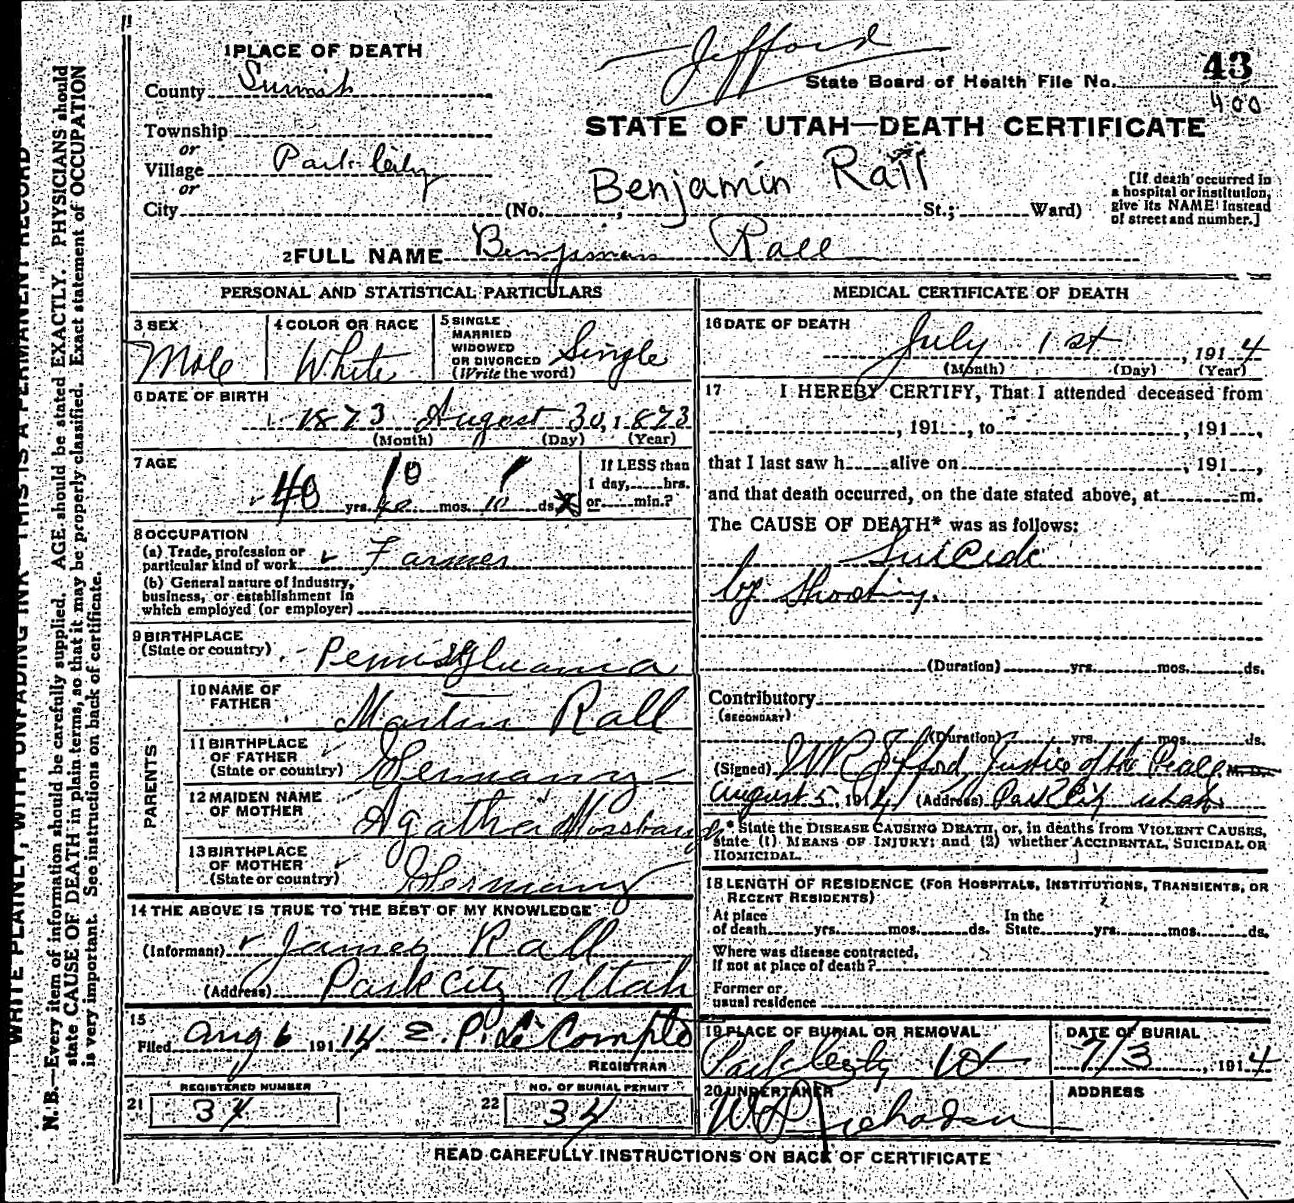 Jefford
43
State Board of Health File No.
400
STATE OF UTAH—DEATH CERTIFICATE
1 PLACE OF DEATH
County Summit
Township
or
Village Park City
or
City (No. , St.; Ward)
Benjamin Rall
[If death occurred in
a hospital or institution,
give its NAME instead
of street and number.]
2 FULL NAME Benjiman Rall
PERSONAL AND STATISTICAL PARTICULARS
3 SEX
Male
4 COLOR OR RACE
White
5 SINGLE
MARRIED
WIDOWED
OR DIVORCED
(Write the word)
Single
6 DATE OF BIRTH
1873 August 30, 1873
(Month) (Day) (Year)
7 AGE
40 10 1
yrs. 10 mos. 10 ds.
If LESS than
1 day, hrs.
or min.?
8 OCCUPATION
(a) Trade, profession or
particular kind of work Farmer
(b) General nature of industry,
business, or establishment in
which employed (or employer)
9 BIRTHPLACE
(State or country)
Pennsylvania
PARENTS
10 NAME OF
FATHER
Martin Rall
11 BIRTHPLACE
OF FATHER
(State or country)
Germany
12 MAIDEN NAME
OF MOTHER
Agatha
13 BIRTHPLACE
OF MOTHER
(State or country)
Germany
14 THE ABOVE IS TRUE TO THE BEST OF MY KNOWLEDGE
(Informant) James Rall
(Address) Park City Utah
15
Filed Aug 6 1914 E. P. Le Compte
REGISTRAR
REGISTERED NUMBER
21 34
NO. OF BURIAL PERMIT
22 34
MEDICAL CERTIFICATE OF DEATH
16 DATE OF DEATH
July 1st, 1914
(Month) (Day) (Year)
17 I HEREBY CERTIFY, That I attended deceased from
, 191 , to , 191 ,
that I last saw h alive on , 191 ,
and that death occurred, on the date stated above, at m.
The CAUSE OF DEATH* was as follows:
Suicide
by Shooting.
(Duration) yrs. mos. ds.
Contributory
(SECONDARY)
(Duration) yrs. mos. ds.
(Signed) Jefford Justice of the Peace M. D.
August 5, 1914 (Address) Park City Utah
* State the DISEASE CAUSING DEATH, or, in deaths from VIOLENT CAUSES,
state (1) MEANS OF INJURY: and (2) whether ACCIDENTAL, SUICIDAL OR
HOMICIDAL.
18 LENGTH OF RESIDENCE (FOR HOSPITALS, INSTITUTIONS, TRANSIENTS, OR
RECENT RESIDENTS)
At place
of death yrs. mos. ds.
In the
State yrs. mos. ds.
Where was disease contracted,
If not at place of death?
Former or
usual residence
19 PLACE OF BURIAL OR REMOVAL
Park City Ut
DATE OF BURIAL
7/3, 1914
20 UNDERTAKER
ADDRESS
READ CAREFULLY INSTRUCTIONS ON BACK OF CERTIFICATE
WRITE PLAINLY, WITH UNFADING INK—THIS IS A PERMANENT RECORD
N. B.—Every item of information should be carefully supplied. AGE should be stated EXACTLY. PHYSICIANS should
state CAUSE OF DEATH in plain terms, so that it may be properly classified. Exact statement of OCCUPATION
is very important. See instructions on back of certificate.